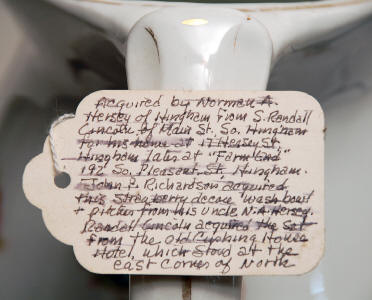 Acquired by Norman A.
Hersey of Hingham from S. Randall
Lincoln of Main St. So. Hingham
for his home at 17 Hersey St.
Hingham later at "Farm End"
192 So. Pleasant St. Hingham.
John P. Richardson acquired
this Strawberry decor wash bowl
+ pitcher from his uncle N.A. Hersey.
Randall Lincoln acquired the set
from the old Cushing House
Hotel, which stood at the
east corner of North